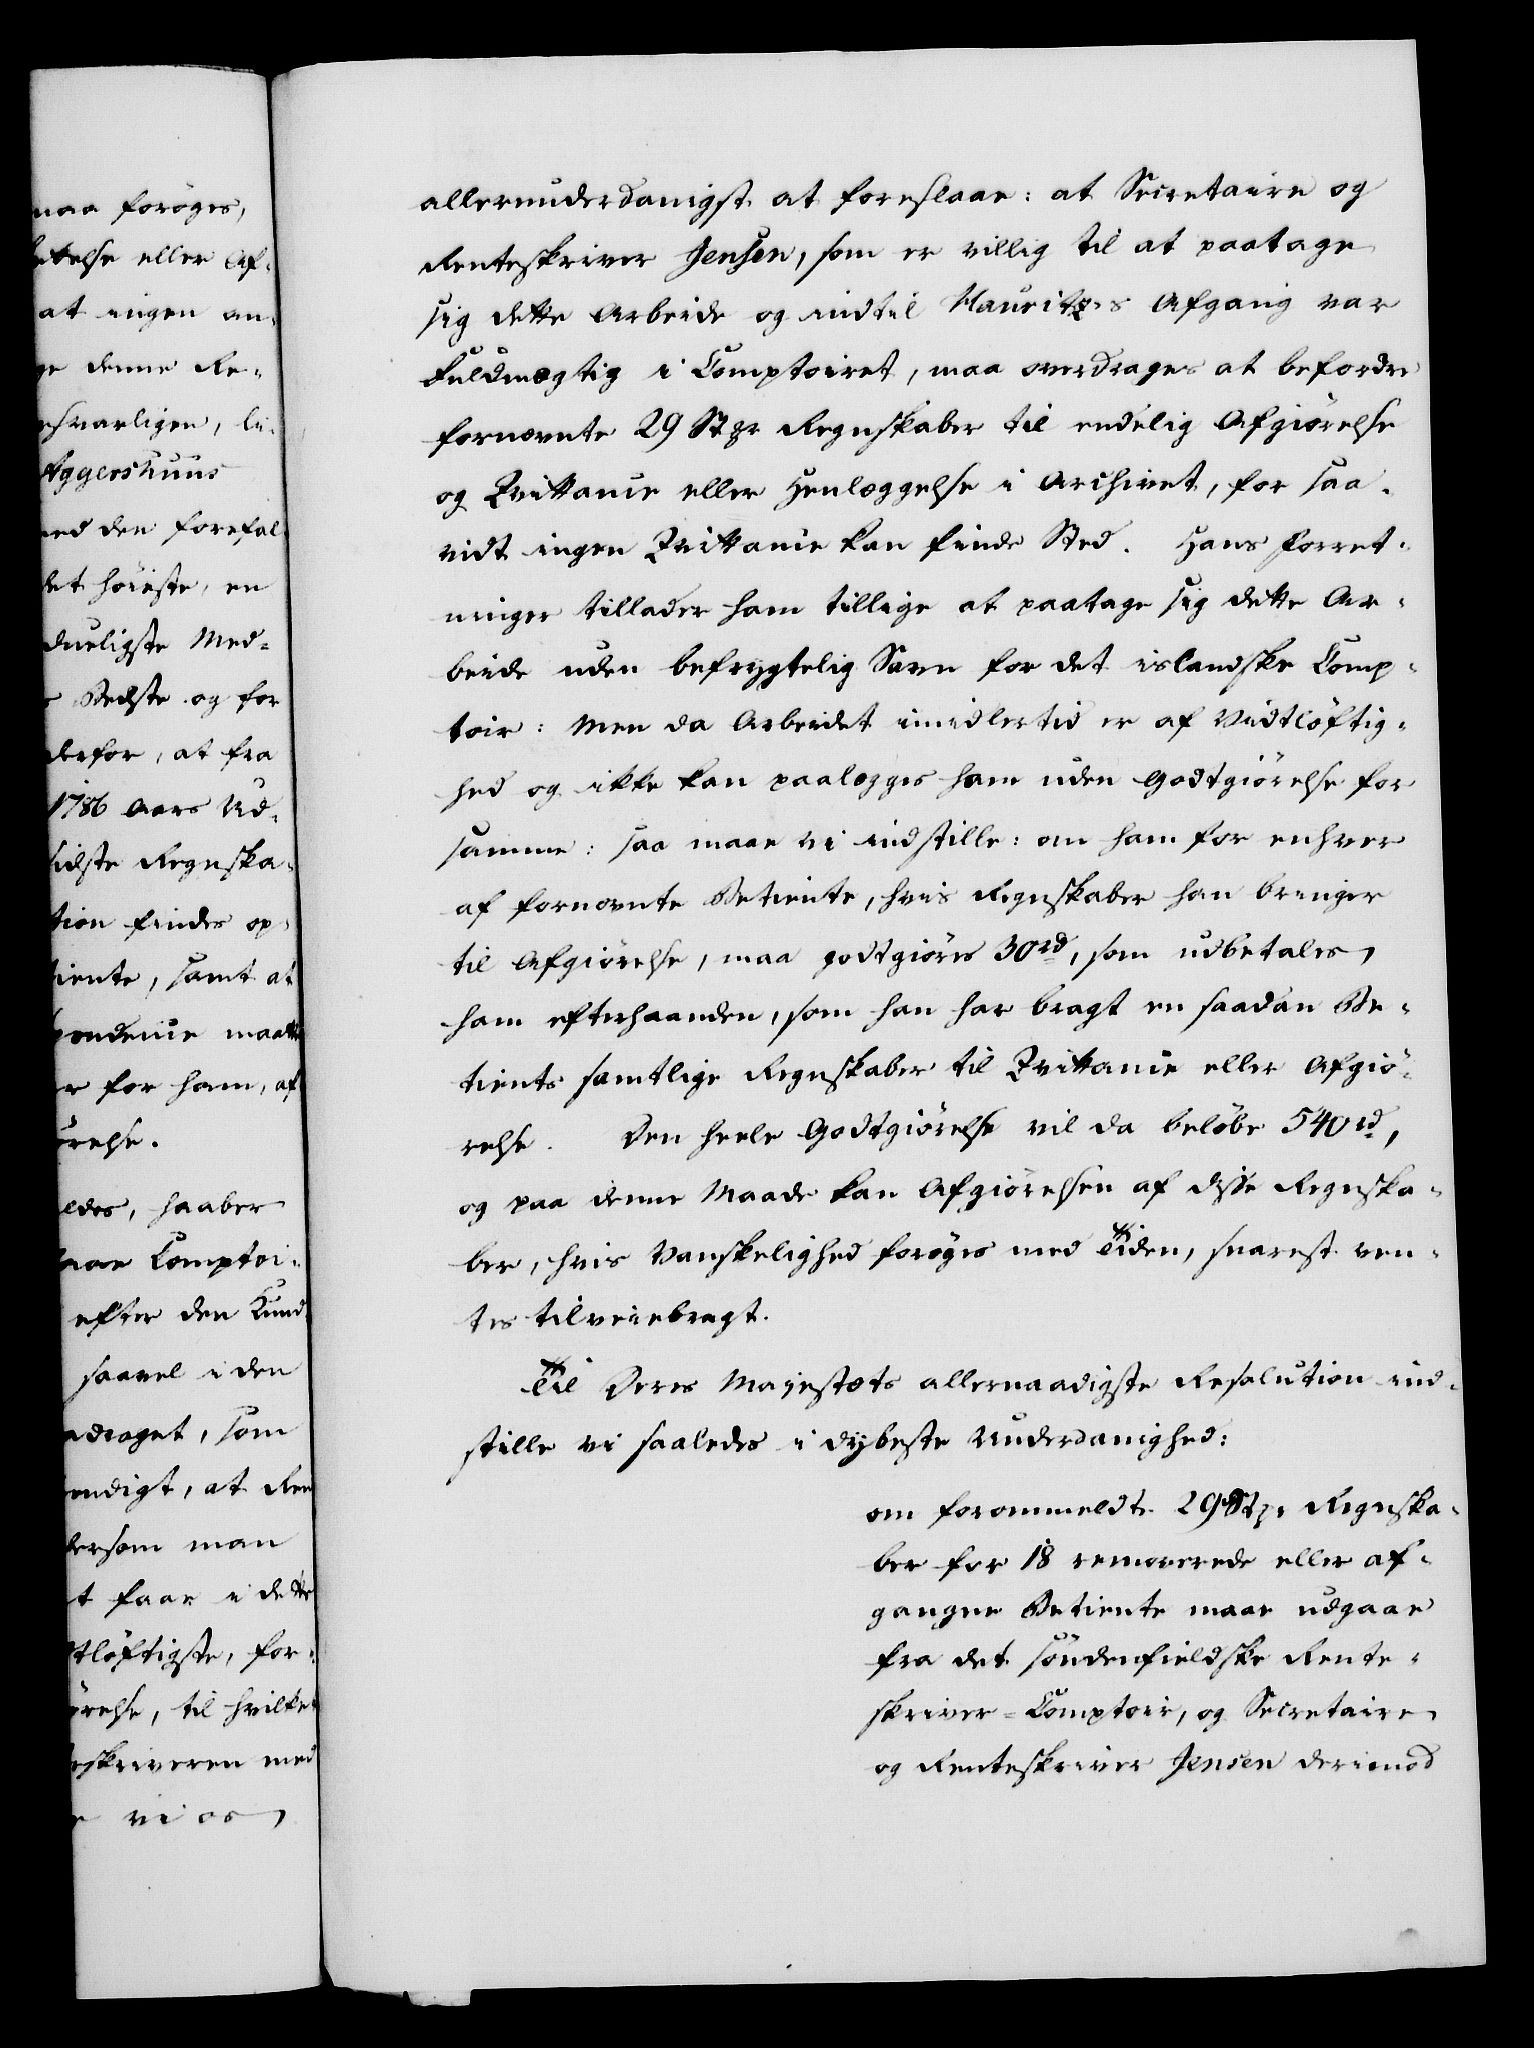 maa forøges,
ttelse eller Af-
at ingen an-
ge denne Re-
svarligen, li-
Aggershuus
ed den forefal-
et höieste, en
dueligste Med-
Bedste og for
derfor, at fra
1786 Aars Ud-
sidste Regnska-
tion findes op-
tiente, samt at
ondence maatte
r for ham, af
örelse.
ldes, haaber
Comptoi-
efter den Kund-
saavel i den
draget, som
endigt, at Ren
dersom man
t faar i dette
tlöftigste, for-
örelse, til hvilken
skriveren med
vi os
allerunderdanigst at foreslaae: at Secretaire og
Renteskriver Jensen, som er villig til at paatage
sig dette Arbeide og indtil Mauritzes Afgang var
Fuldmægtig i Comptoiret, maa overdrages at befordre
fornævnte 29 Stkr Regnskaber til endelig Afgiörelse
og Qvittance eller Henlæggelse i Archivet, for saa-
vidt ingen Qvittance kan finde Sted. Hans Forret-
ninger tillader ham tillige at paatage sig dette Ar-
beide uden befrygtelig Savn for det islandske Comp-
toir: Men da Arbeidet imidlertid er af Vidtlöftig-
hed og ikke kan paalægges ham uden Godtgiörelse for
samme: saa maae vi indstille: om ham for enhver
af fornævnte Betiente, hvis Regnskaber han bringer
til Afgiörelse, maa godtgiöres 30 rd, som udbetales
ham efterhaanden, som han har bragt en saadan Be-
tients samtlige Regnskaber til Qvittance eller Afgiö-
relse. Den heele Godtgiörelse vil da belöbe 540 rd,
og paa denne Maade kan Afgiörelsen af disse Regnska-
ber, hvis Vanskelighed foröges med Tiden, snarest ven-
tes tilveiebragt.
Til Deres Majestæts allernaadigste Resolution ind-
stille vi saaledes i dybeste Underdanighed:
om forommeldte 29 Stkr Regnska-
ber for 18 removerede eller af-
gangne Betiente maae udgaae
fra det söndenfieldske Rente-
skriver-Comptoir, og Secretaire
og Renteskriver Jensen derimod